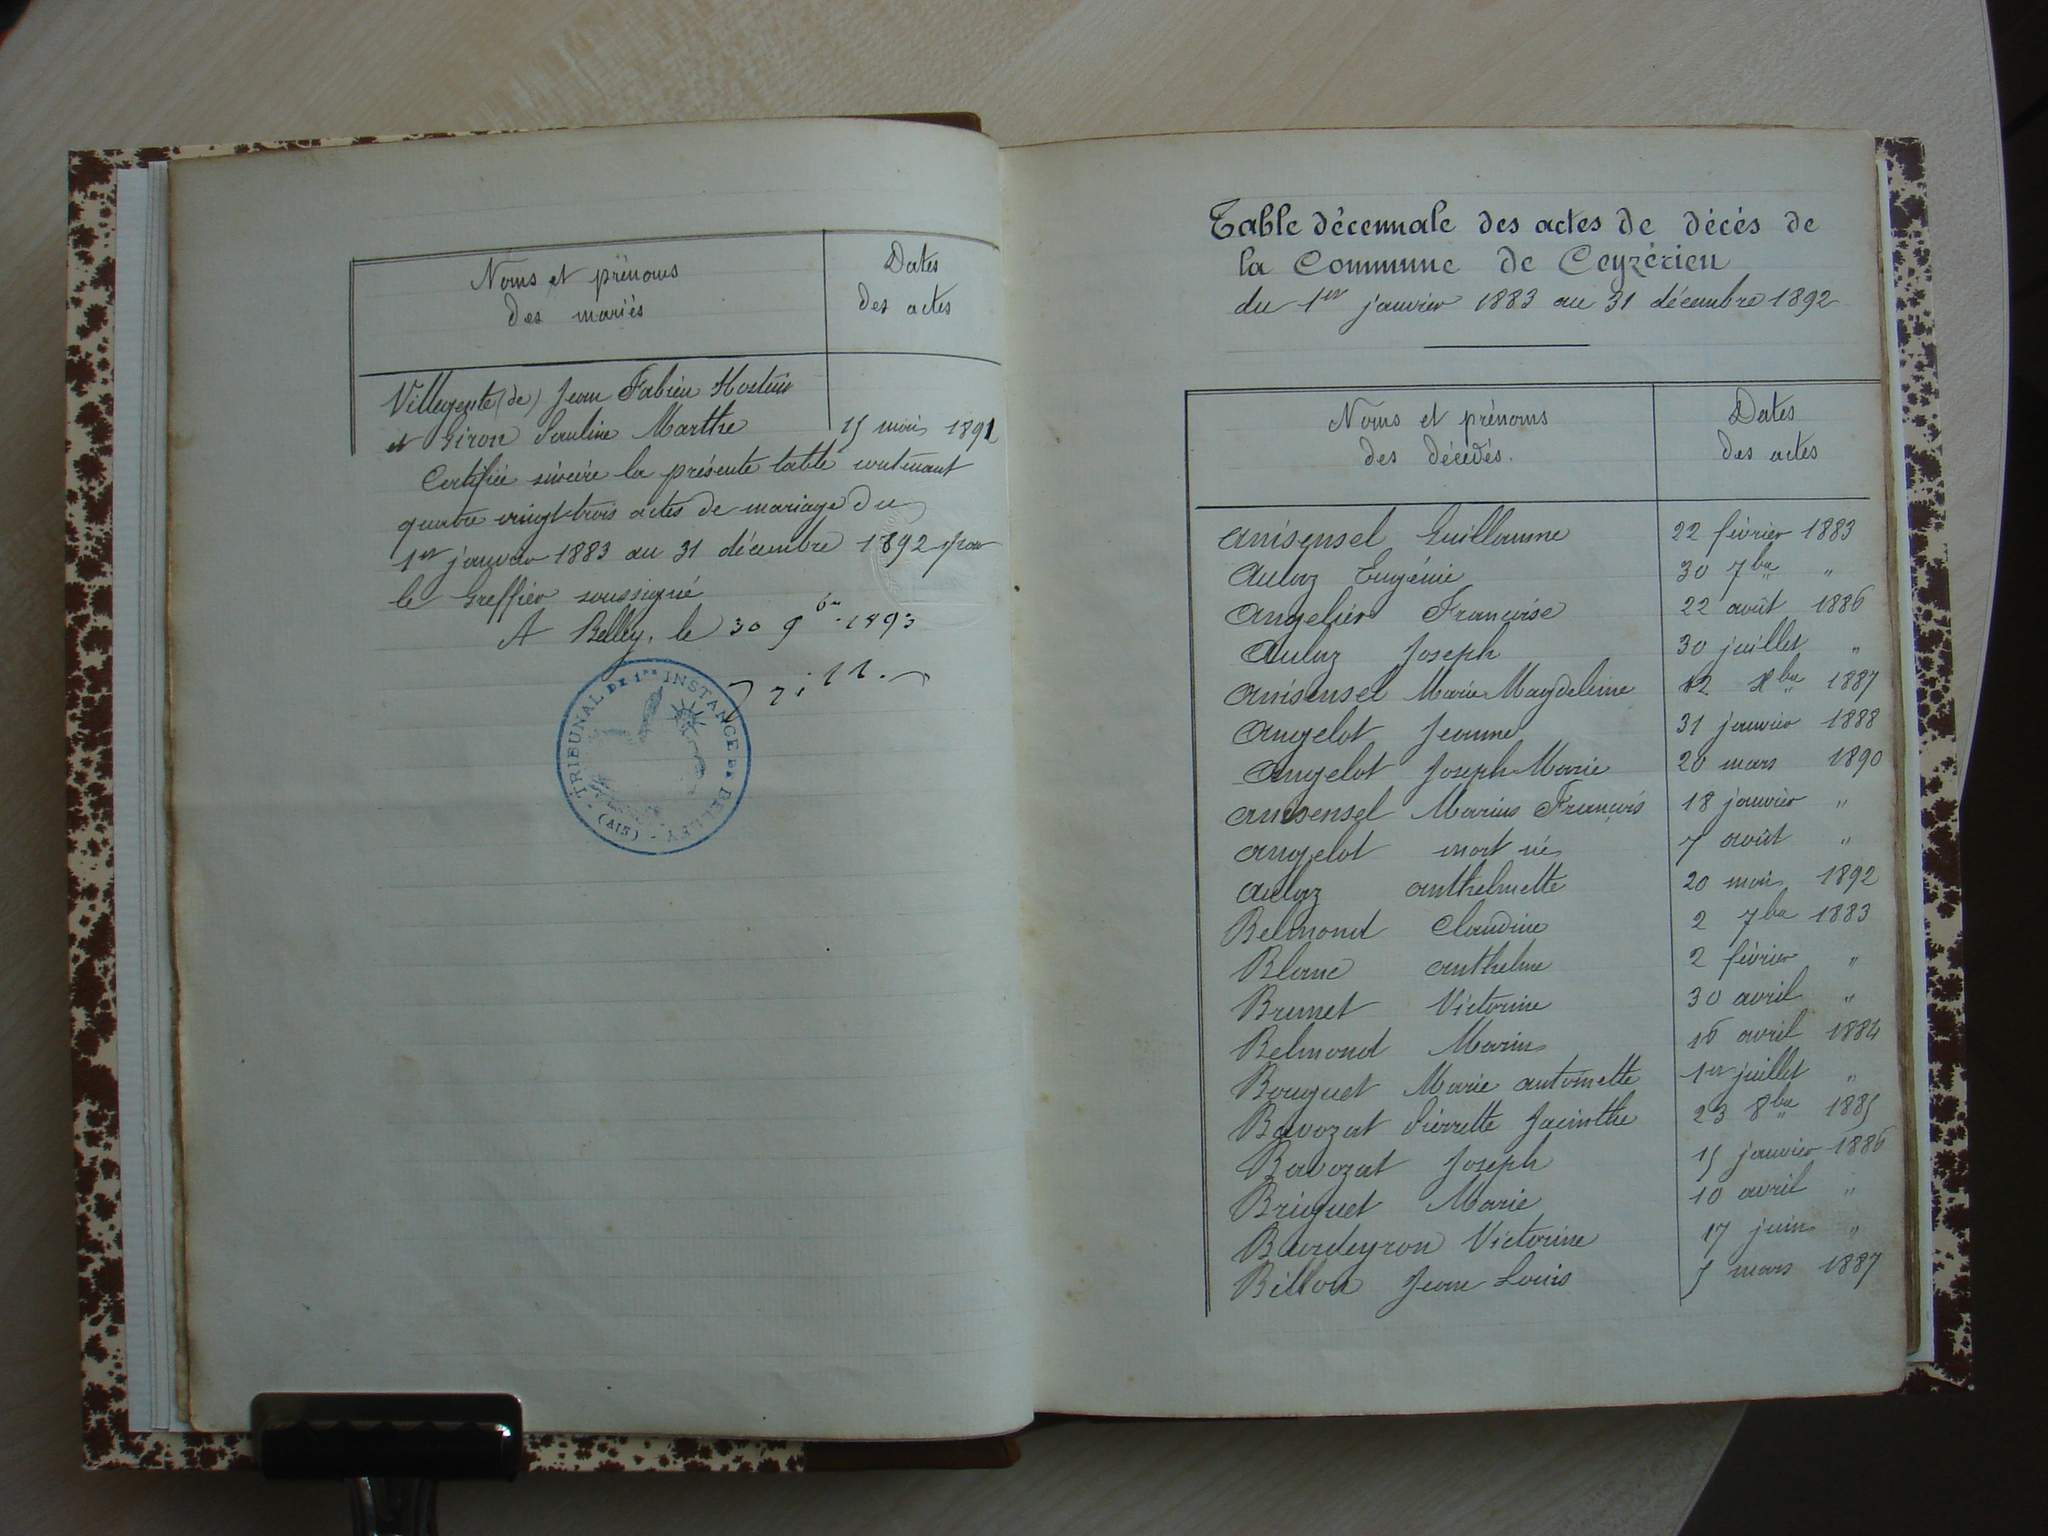 Noms et prénoms
des mariés
Dates
des actes
Villegente (de) Jean Fabien
et Giron Pauline Marthe 15 mai 1892
Certifiée sincère la présente table contenant
quatre vingt-trois actes de mariage du
1er janvier 1883 au 31 décembre 1892 par
le Greffier soussigné
A Belley, le 30 9bre 1893
TRIBUNAL DE 1RE INSTANCE DE BELLEY
(AIN)
Table décennale des actes de décès de
la Commune de Ceyzérieu
du 1er janvier 1883 au 31 décembre 1892
Noms et prénoms
des décédés.
Dates
des actes
Anisensel Guillaume 22 février 1883
Aulaz Eugénie 30 7bre "
Angelier Françoise 22 août 1886
Aulaz Joseph 30 juillet "
Anisensel Marie Magdeleine 12 1887
Angelot Jeanne 31 janvier 1888
Angelot Joseph Marie 20 mars 1890
Anisensel Marius François 18 janvier "
Angelot mort né 7 août "
Aulaz Anthelmette 20 mai 1892
Belmond Claudine 2 7bre 1883
Blanc Anthelme 2 février "
Brunet Victorine 30 avril "
Belmond Marin 16 avril 1884
Bouquet Marie Antoinette 1er juillet "
Bavozat Pierrette Jacinthe 23 8bre 1885
Bavozat Joseph 15 janvier 1886
Briquet Marie 10 avril "
Bardeyron Victorine 17 juin "
Billon Jean Louis 5 mars 1887